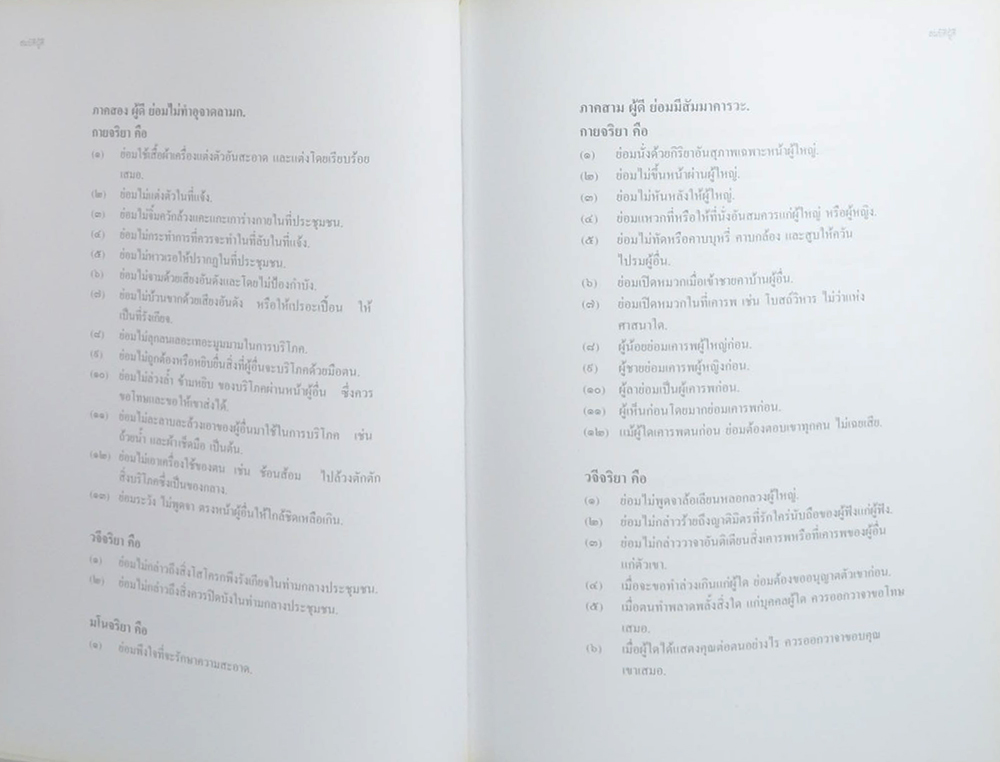 ภาคสอง ผู้ดี ย่อมไม่ทำอุจาดลามก.
กายจริยา คือ
(๑) ย่อมใช้เสื้อผ้าเครื่องแต่งตัวอันสะอาด และแต่งโดยเรียบร้อย
เสมอ.
(๒) ย่อมไม่แต่งตัวในที่แจ้ง.
(๓) ย่อมไม่จิ้มควักล้วงแคะแกะเการ่างกายในที่ประชุมชน.
(๔) ย่อมไม่กระทำการที่ควรจะทำในที่ลับในที่แจ้ง.
(๕) ย่อมไม่หาวเรอให้ปรากฏในที่ประชุมชน.
(๖) ย่อมไม่จามด้วยเสียงอันดังและโดยไม่ป้องกำบัง.
(๗) ย่อมไม่บ้วนขากด้วยเสียงอันดัง หรือให้เปรอะเปื้อน ให้
เป็นที่รังเกียจ.
(๘) ย่อมไม่ลุกลนเลอะเทอะมูมมามในการบริโภค.
(๙) ย่อมไม่ถูกต้องหรือหยิบยื่นสิ่งที่ผู้อื่นจะบริโภคด้วยมือตน.
(๑๐) ย่อมไม่ล่วงล้ำ ข้ามหยิบ ของบริโภคผ่านหน้าผู้อื่น ซึ่งควร
ขอโทษและขอให้เขาส่งได้.
(๑๑) ย่อมไม่ละลาบละล้วงเอาของผู้อื่นมาใช้ในการบริโภค เช่น
ถ้วยน้ำ และผ้าเช็ดมือ เป็นต้น.
(๑๒) ย่อมไม่เอาเครื่องใช้ของตน เช่น ช้อนส้อม ไปล้วงตักตัก
สิ่งบริโภคซึ่งเป็นของกลาง.
(๑๓) ย่อมระวัง ไม่พูดจา ตรงหน้าผู้อื่นให้ใกล้ชิดเหลือเกิน.
วจีจริยา คือ
(๑) ย่อมไม่กล่าวถึงสิ่งโสโครกพึงรังเกียจในท่ามกลางประชุมชน.
(๒) ย่อมไม่กล่าวถึงสิ่งควรปิดบังในท่ามกลางประชุมชน.
มโนจริยา คือ
(๑) ย่อมพึงใจที่จะรักษาความสะอาด.
ภาคสาม ผู้ดี ย่อมมีสัมมาคารวะ.
กายจริยา คือ
(๑) ย่อมนั่งด้วยกิริยาอันสุภาพเฉพาะหน้าผู้ใหญ่.
(๒) ย่อมไม่ขึ้นหน้าผ่านผู้ใหญ่.
(๓) ย่อมไม่หันหลังให้ผู้ใหญ่.
(๔) ย่อมแหวกที่หรือให้ที่นั่งอันสมควรแก่ผู้ใหญ่ หรือผู้หญิง.
(๕) ย่อมไม่ทัดหรือคาบบุหรี่ คาบกล้อง และสูบให้ควัน
ไปรมผู้อื่น.
(๖) ย่อมเปิดหมวกเมื่อเข้าชายคาบ้านผู้อื่น.
(๗) ย่อมเปิดหมวกในที่เคารพ เช่น โบสถ์วิหาร ไม่ว่าแห่ง
ศาสนาใด.
(๘) ผู้น้อยย่อมเคารพผู้ใหญ่ก่อน.
(๙) ผู้ชายย่อมเคารพผู้หญิงก่อน.
(๑๐) ผู้ลาย่อมเป็นผู้เคารพก่อน.
(๑๑) ผู้เห็นก่อนโดยมากย่อมเคารพก่อน.
(๑๒) แม้ผู้ใดเคารพตนก่อน ย่อมต้องตอบเขาทุกคน ไม่เฉยเสีย.
วจีจริยา คือ
(๑) ย่อมไม่พูดจาล้อเลียนหลอกลวงผู้ใหญ่.
(๒) ย่อมไม่กล่าวร้ายถึงญาติมิตรที่รักใคร่นับถือของผู้ฟังแก่ผู้ฟัง.
(๓) ย่อมไม่กล่าววาจาอันติเตียนสิ่งเคารพหรือที่เคารพของผู้อื่น
แก่ตัวเขา.
(๔) เมื่อจะขอทำล่วงเกินแก่ผู้ใด ย่อมต้องขออนุญาตตัวเขาก่อน.
(๕) เมื่อตนทำพลาดพลั้งสิ่งใด แก่บุคคลผู้ใด ควรออกวาจาขอโทษ
เสมอ.
(๖) เมื่อผู้ใดได้แสดงคุณต่อตนอย่างไร ควรออกวาจาขอบคุณ
เขาเสมอ.